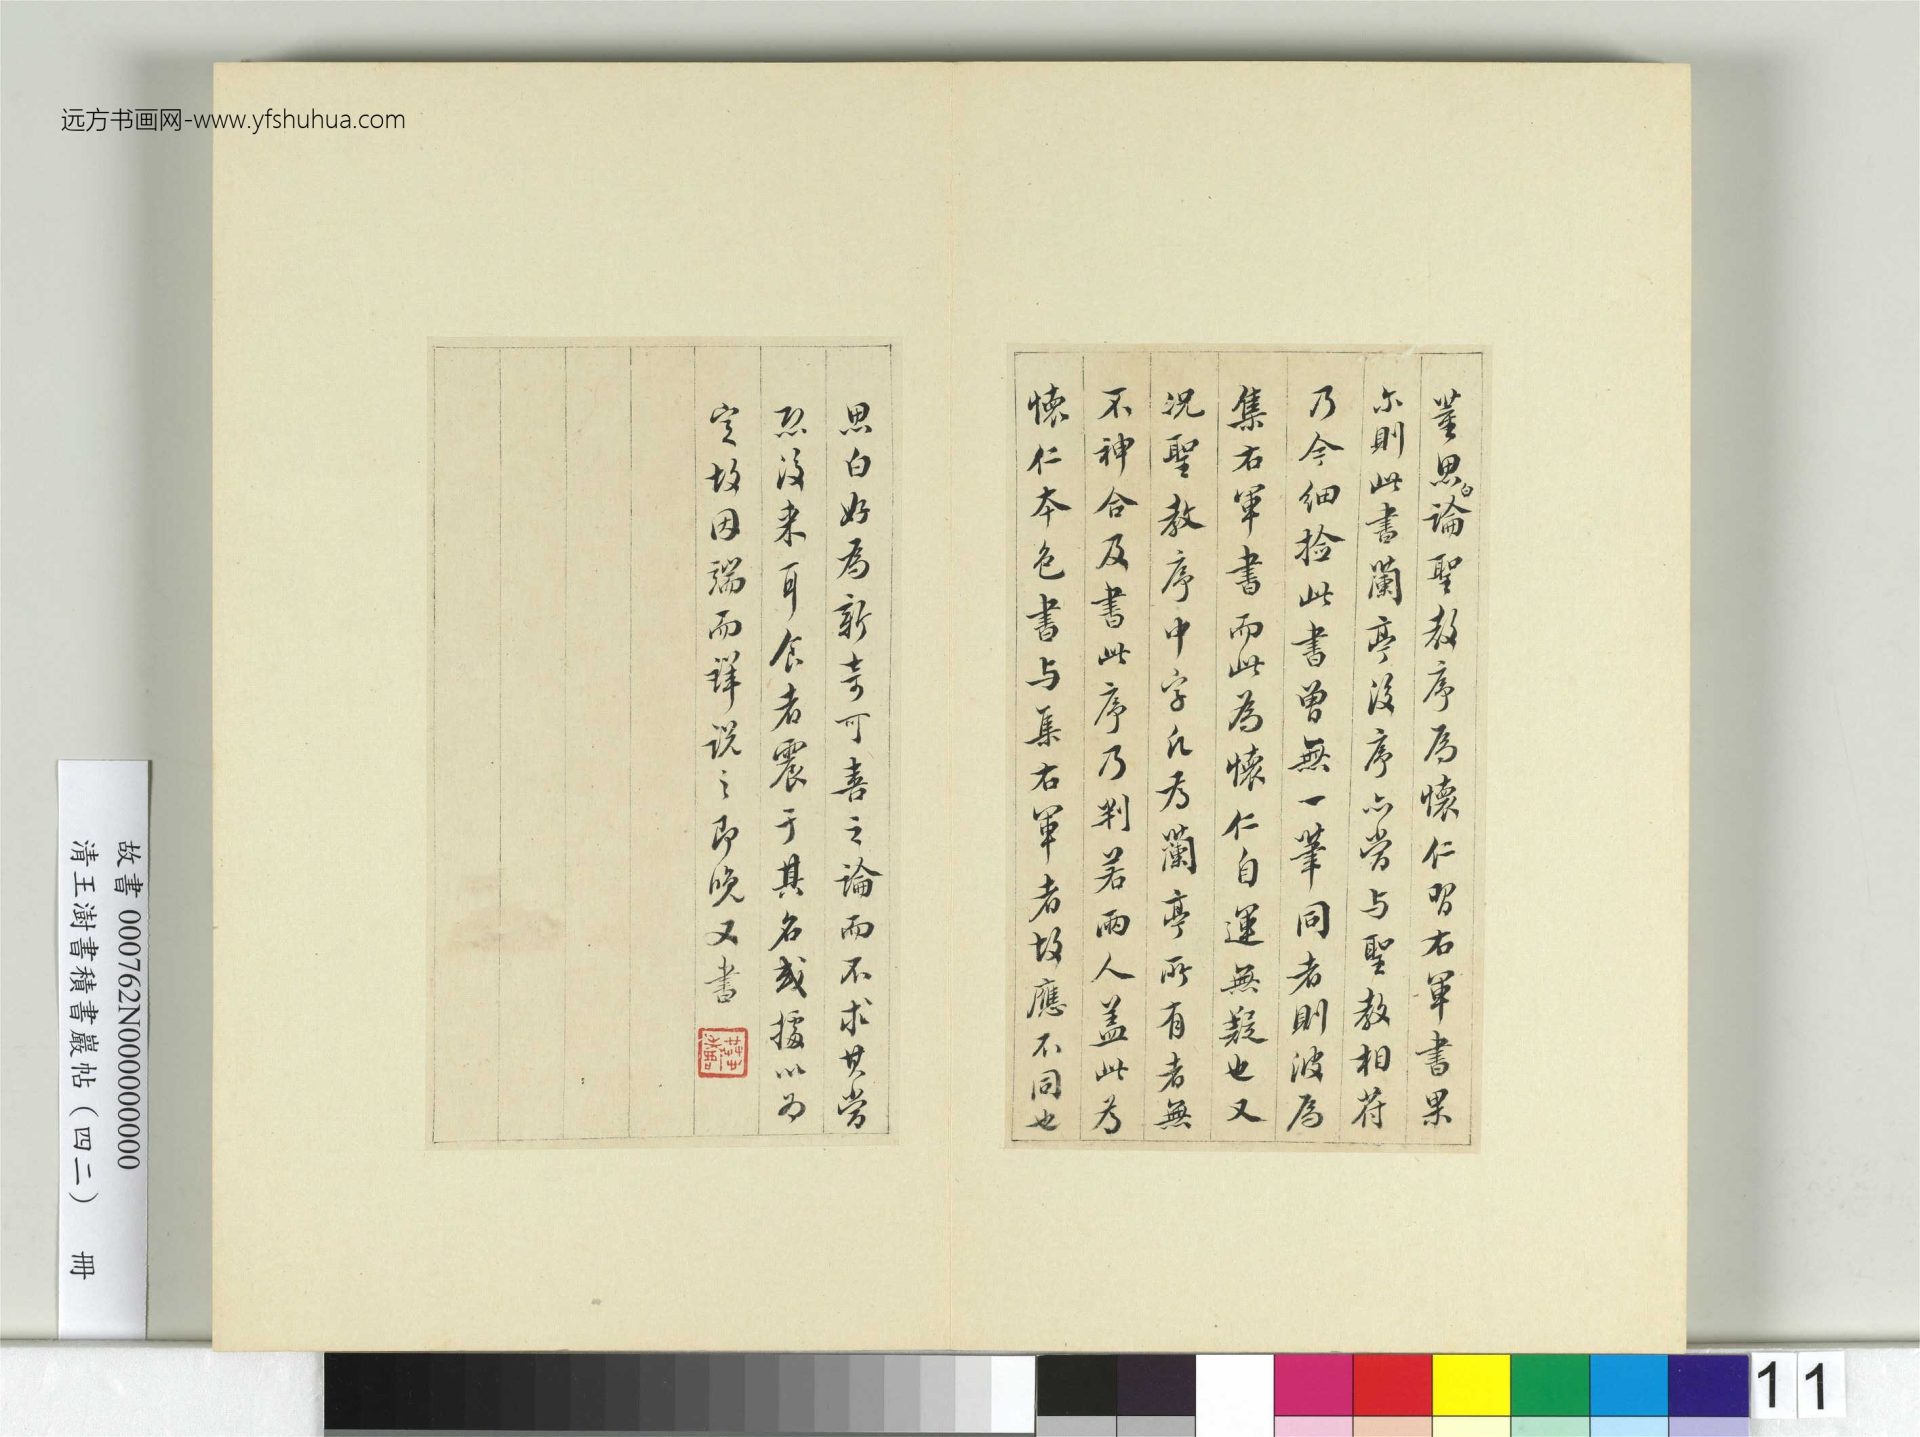 远方书画网-www.yfshuhua.com
董思白論聖教序為懷仁習右軍書果
尔則此書蘭亭後序亦當与聖教相符
乃今細撿此書曾無一筆同者則波為
集右軍書而此為懷仁自運無疑也又
況聖教序中字凡為蘭亭所有者無
不神合及書此序乃判若兩人蓋此為
懷仁本色書与集右軍者故應不同也
思白好為新奇可喜之論而不求其當
恐後来耳食者震于其名或據以為
定故因端而詳說之即晚又書
故書 000762N000000000
清王澍書積書巖帖(四二) 冊
11